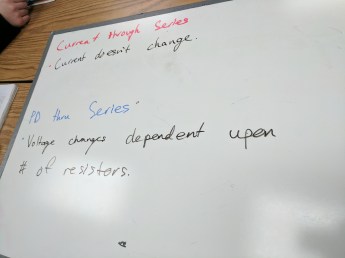 Current through Series
· Current doesn't change.
PD thru Series
· Voltage changes dependent upon
# of resistors.